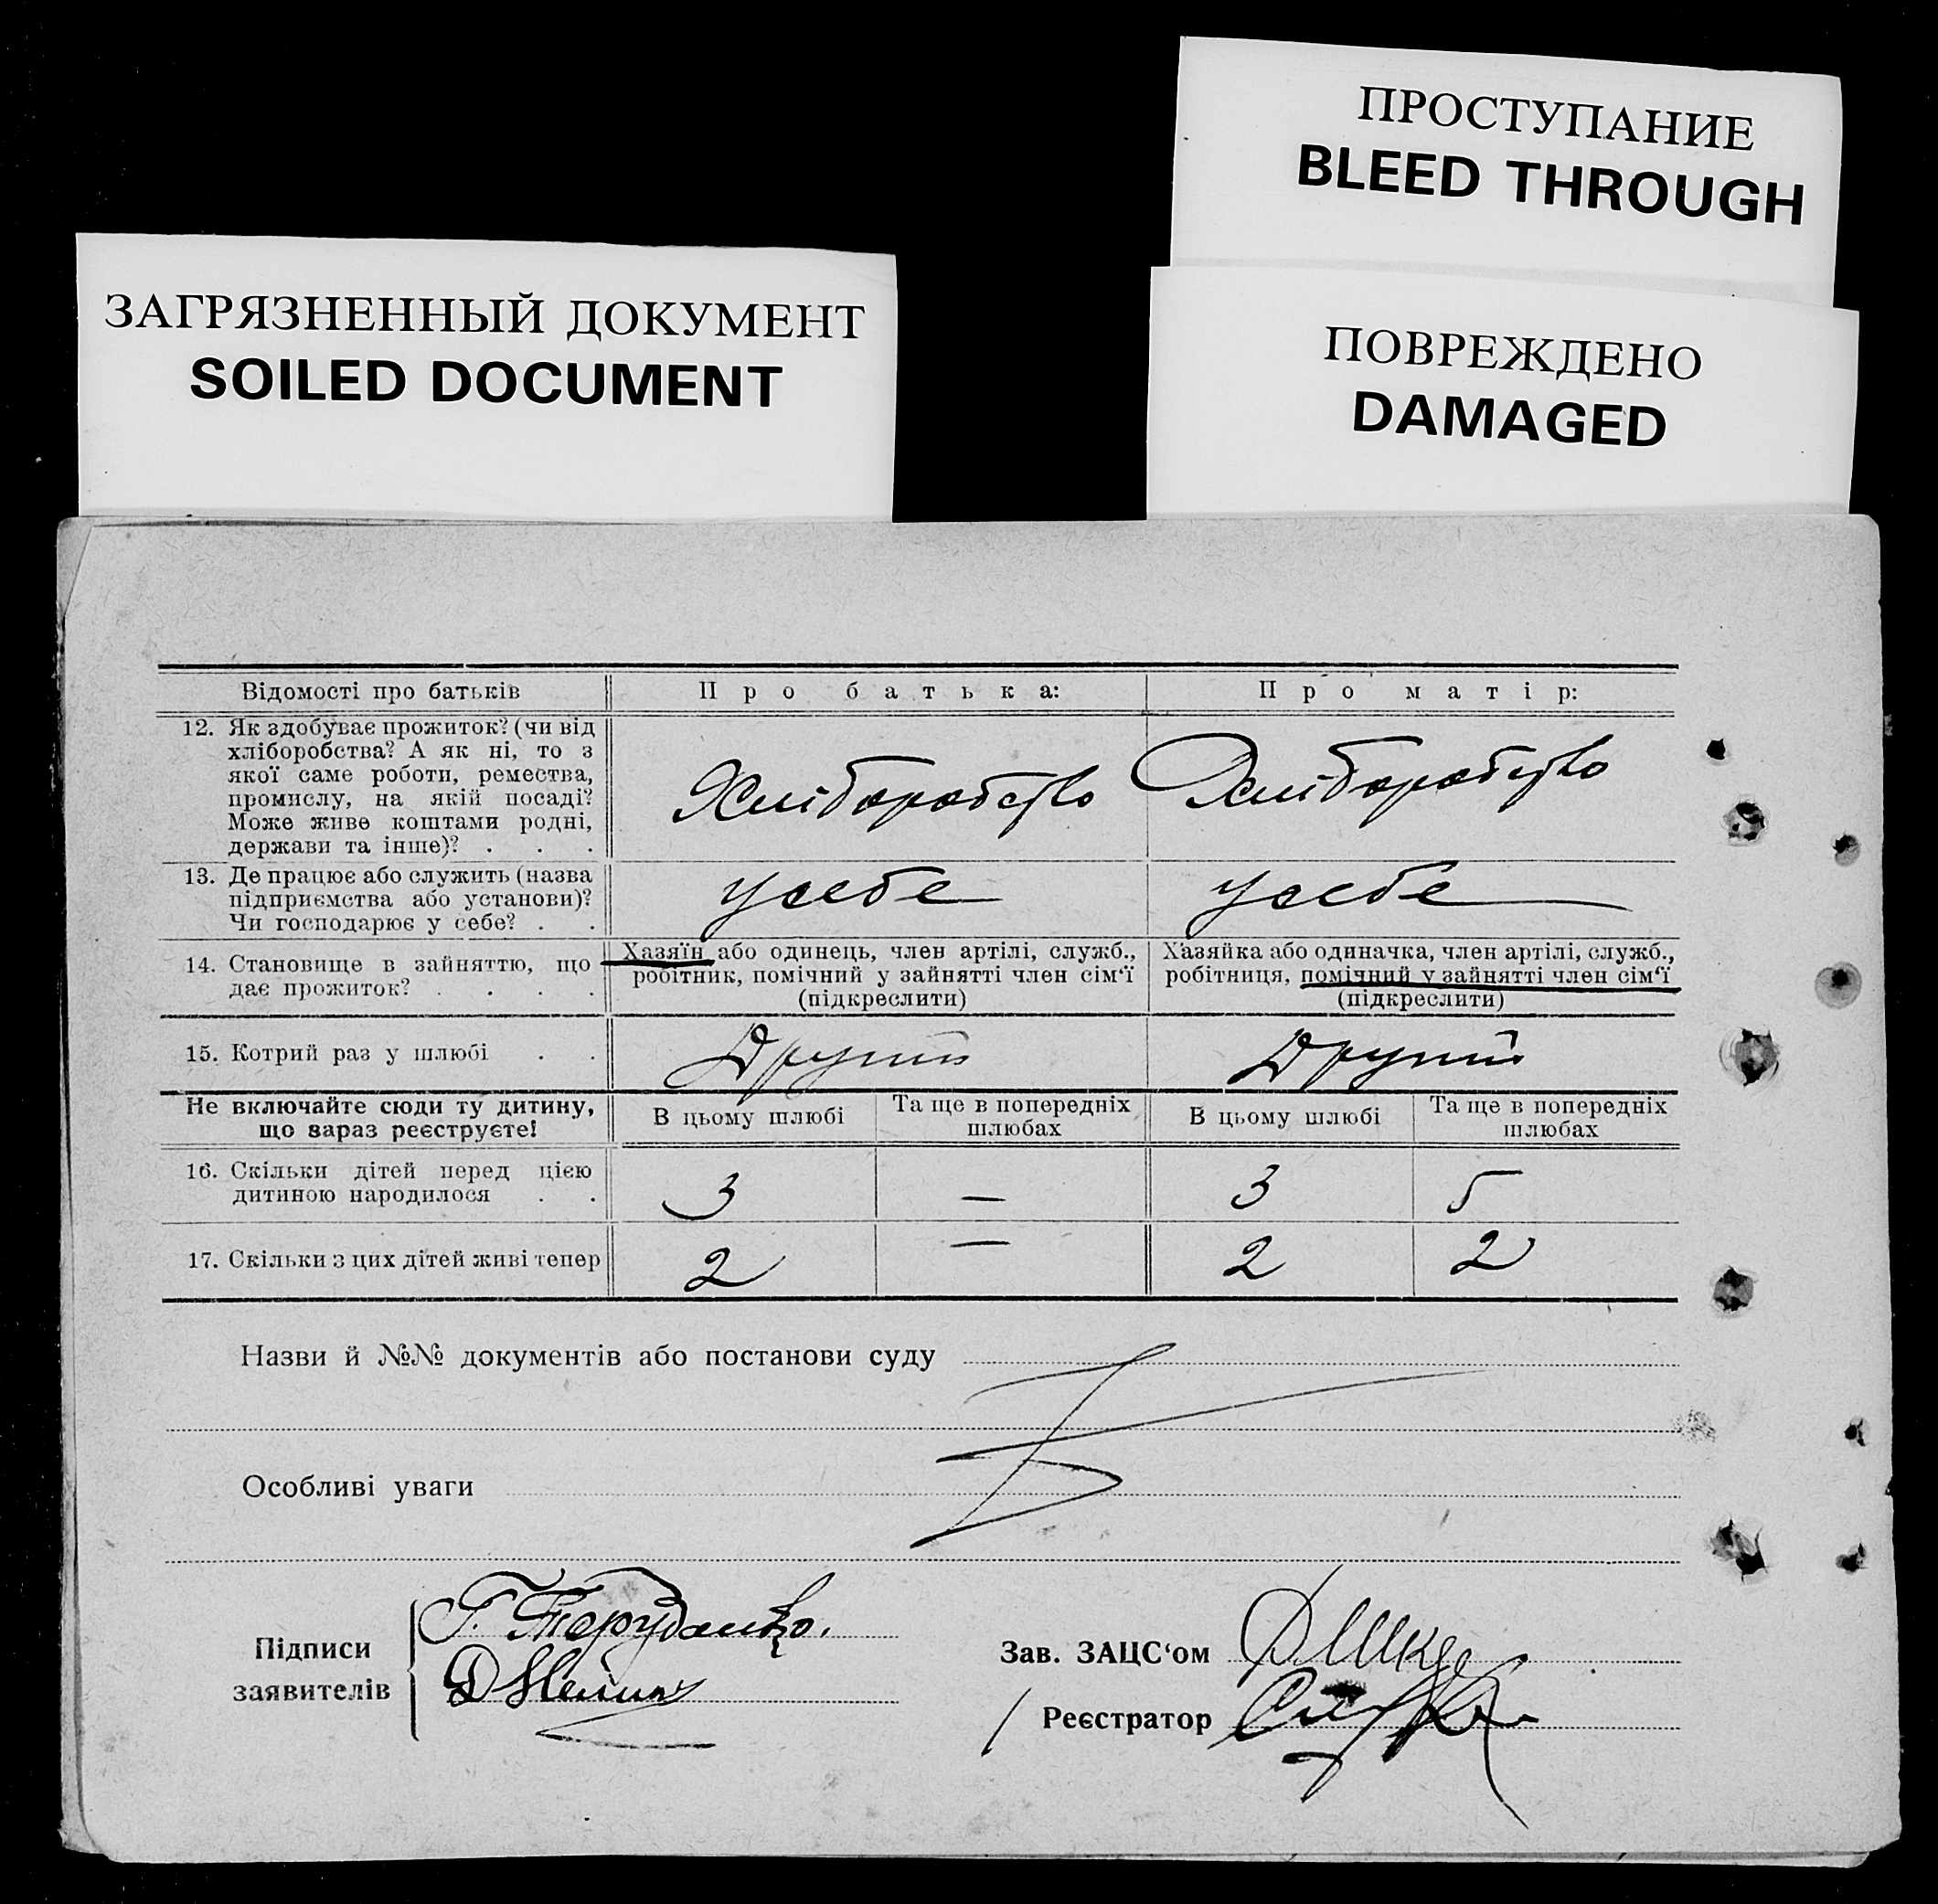 ПРОСТУПАНИЕ
BLEED THROUGH
ЗАГРЯЗНЕННЫЙ ДОКУМЕНТ
SOILED DOCUMENT
ПОВРЕЖДЕНО
DAMAGED
Відомості про батьків Про батька: Про матір:
12. Як здобуває прожиток? (чи від
хліборобства? А як ні, то з
якої саме роботи, ремества,
промислу, на якій посаді?
Може живе коштами родні,
держави та інше)? . . .
Хліборобство Хліборобство
13. Де працює або служить (назва
підприємства або установи)?
Чи господарює у себе? . .
у себе у себе
14. Становище в зайняттю, що
дає прожиток? . . . .
Хазяїн або одинець, член артілі, служб.,
робітник, помічний у зайнятті член сім‘ї
(підкреслити)
Хазяйка або одиначка, член артілі, служб.,
робітниця, помічний у зайнятті член сім‘ї
(підкреслити)
15. Котрий раз у шлюбі . . Другий Другий
Не включайте сюди ту дитину,
що зараз реєструєте!
В цьому шлюбі Та ще в попередніх
шлюбах
В цьому шлюбі Та ще в попередніх
шлюбах
16. Скільки дітей перед цією
дитиною народилося . .
3 — 3 5
17. Скільки з цих дітей живі тепер 2 — 2 2
Назви й №№ документів або постанови суду
Особливі уваги
Підписи
заявителів
Г.
Зав. ЗАЦС‘ом
Реєстратор